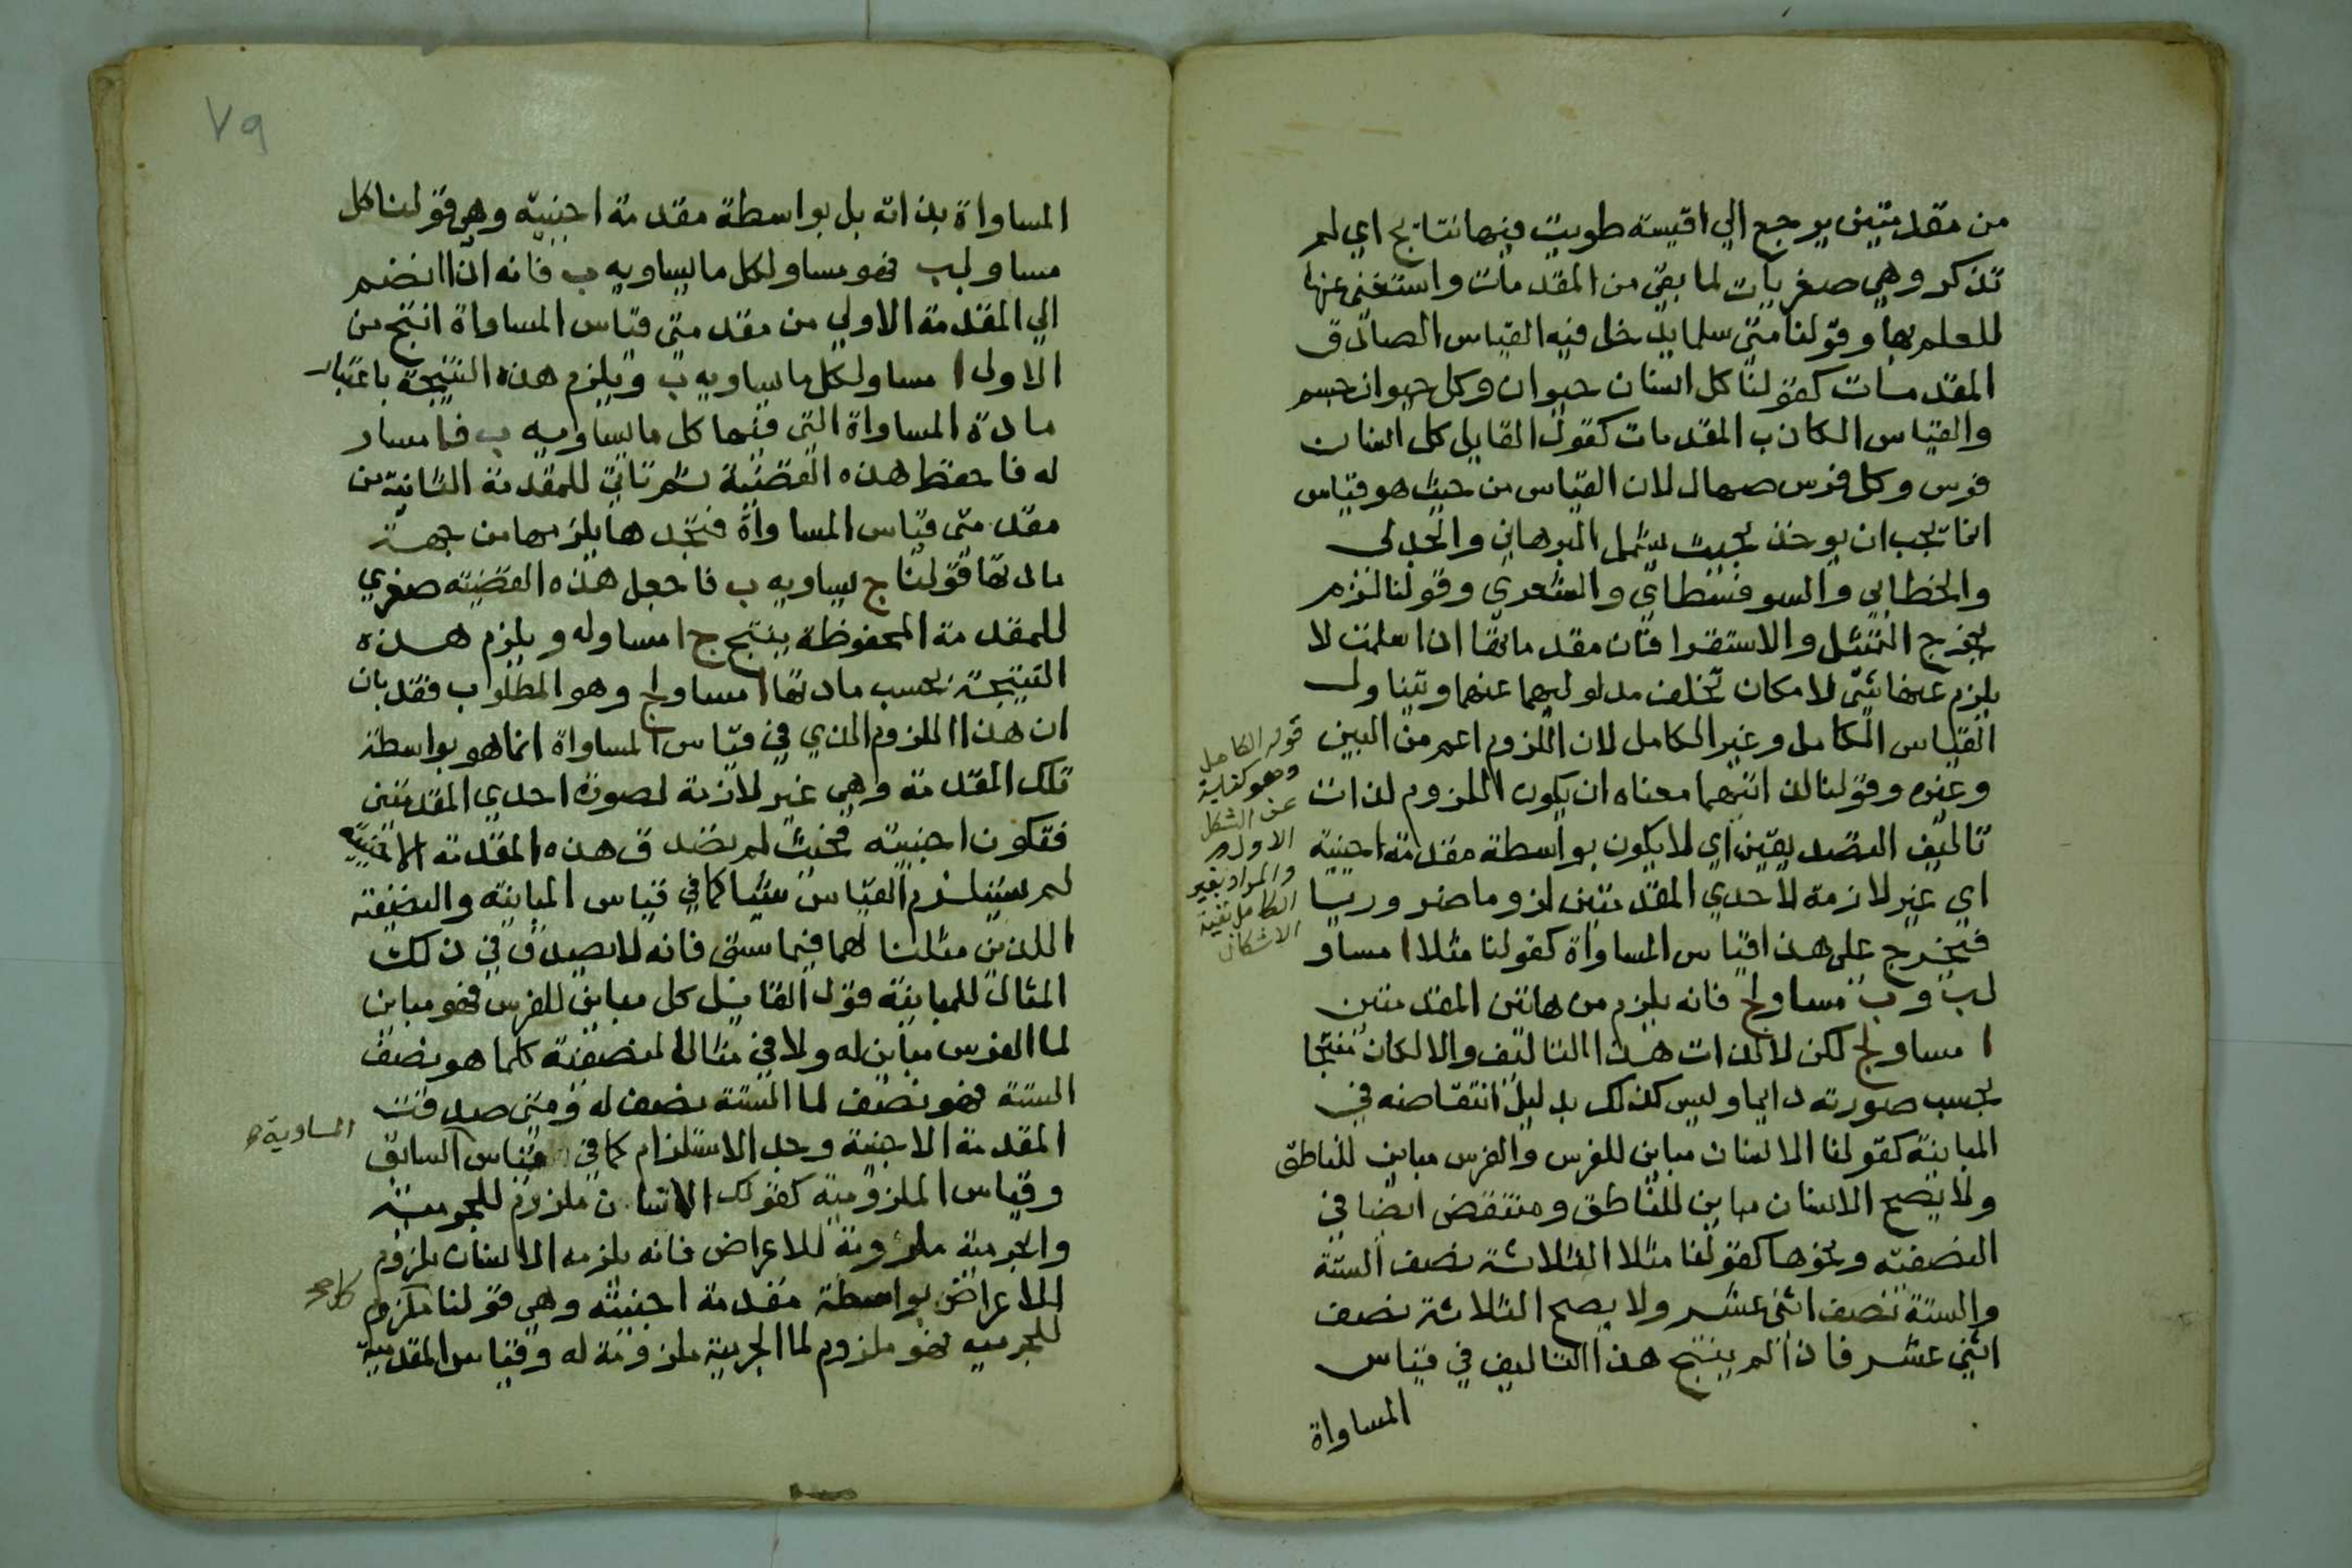 من مقدمتين يرجع الي اقيسة طويت فيها نتايج اي لم
تذكر وهي صغريات لما بقي من المقدمات واستغني عنها
للعلم بها وقولنا متي سلما يدخل فيه القياس الصادق
المقدمات كقولنا كل انسان حيوان وكل حيوان جسم
والقياس الكاذب المقدمات كقول القايل كل انسان
فرس وكل فرس صهال لان القياس من حيث هو قياس
انما يجب ان يوخذ بحيث يشمل البرهاني والجدلي
والخطابي والسوفسطاي والشعري وقولنا لزم
يخرج التمثيل والاستقرا فان مقدماتها اذا سلمت لا
يلزم عنها شي لامكان تخلف مدلوليهما عنهما ويتناول
القياس الكامل وغير الكامل لان اللزوم اعم من البين
وغيره وقولنا لذاتيهما معناه ان يكون اللزوم لذات
تاليف التصديقين اي لا يكون بواسطة مقدمة اجنبية
اي غير لازمة لاحدي المقدمتين لزوما ضروريا
فيخرج علي هذا قياس المساواة كقولنا مثلا ا مساو
لب وب مساو لج فانه يلزم من هاتين المقدمتين
ا مساو لج لكن لا لذات هذا التاليف والا لكان منتجا
بحسب صورته دايما وليس كذلك بدليل انتقاضه في
المباينة كقولنا الانسان مباين للفرس والفرس مباين للناطق
ولا يصح الانسان مباين للناطق ومنتقض ايضا في
النصفية ونحوها كقولنا مثلا الثلاثة نصف الستة
والستة نصف اثني عشر ولا يصح الثلاثة نصف
اثني عشر فاذا لم ينتج هذا التاليف في قياس
المساواة
قوله الكامل
وهو كناية
عن الشكل
الاول
والمراد بغير
الكامل بقية
الاشكال
٧٩
المساواة بذاته بل بواسطة مقدمة اجنبية وهي قولنا كل
مساو لب فهو مساو لكل ما يساويه ب فانه اذا انضم
الي المقدمة الاولي من مقدمتي قياس المساواة انتج من
الاول ا مساو لكل ما يساويه ب ويلزم هذه النتيجة باعتبار
مادة المساواة التي فيها كل ما يساويه ب فا مساو
له فاحفظ هذه القضية ثم تاتي للمقدمة الثانية من
مقدمتي قياس المساواة فتجدها يلزمها من جهة
مادتها قولنا ج يساويه ب فاجعل هذه القضية صغري
للمقدمة المحفوظة ينتج ج ا مساو له ويلزم هذه
النتيجة بحسب مادتها ا مساو لج وهو المطلوب فقد بان
ان هذا اللزوم الذي في قياس المساواة انما هو بواسطة
تلك المقدمة وهي غير لازمة لصورة احدي المقدمتين
فتكون اجنبية فحيث لم تصدق هذه المقدمة الاجنبية
لم يستلزم القياس شيا كما في قياس المباينة والنصفية
اللذين مثلنا لهما فيما سبق فانه لا يصدق في ذلك
المثال للمباينة قول القايل كل مباين للفرس فهو مباين
لما الفرس مباين له ولا في مثال النصفية كلما هو نصف
الستة فهو نصف لما الستة نصف له ومتي صدقت
المقدمة الاجنبية وجد الاستلزام كما في قياس السابق
المساوية
وقياس الملزومية كقولك الانسان ملزوم للجرمية
والجرمية ملزومة للاعراض فانه يلزمه الانسان ملزوم
الاعراض بواسطة مقدمة اجنبية وهي قولنا ملزوم
كل صح
للجرمية فهو ملزوم لما الجرمية ملزومة له وقياس المقدمية